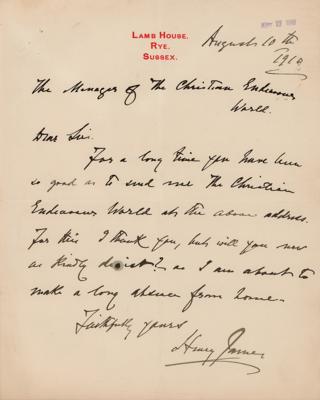 LAMB HOUSE.
RYE.
SUSSEX.
August 10th
1910
The Manager of The Christian Endeavour
World.
Dear Sir.
For a long time you have been
so good as to send me The Christian
Endeavour World at the above address.
For this I thank you, but will you now
as kindly desist? as I am about to
make a long absence from home.
Faithfully yours
Henry James